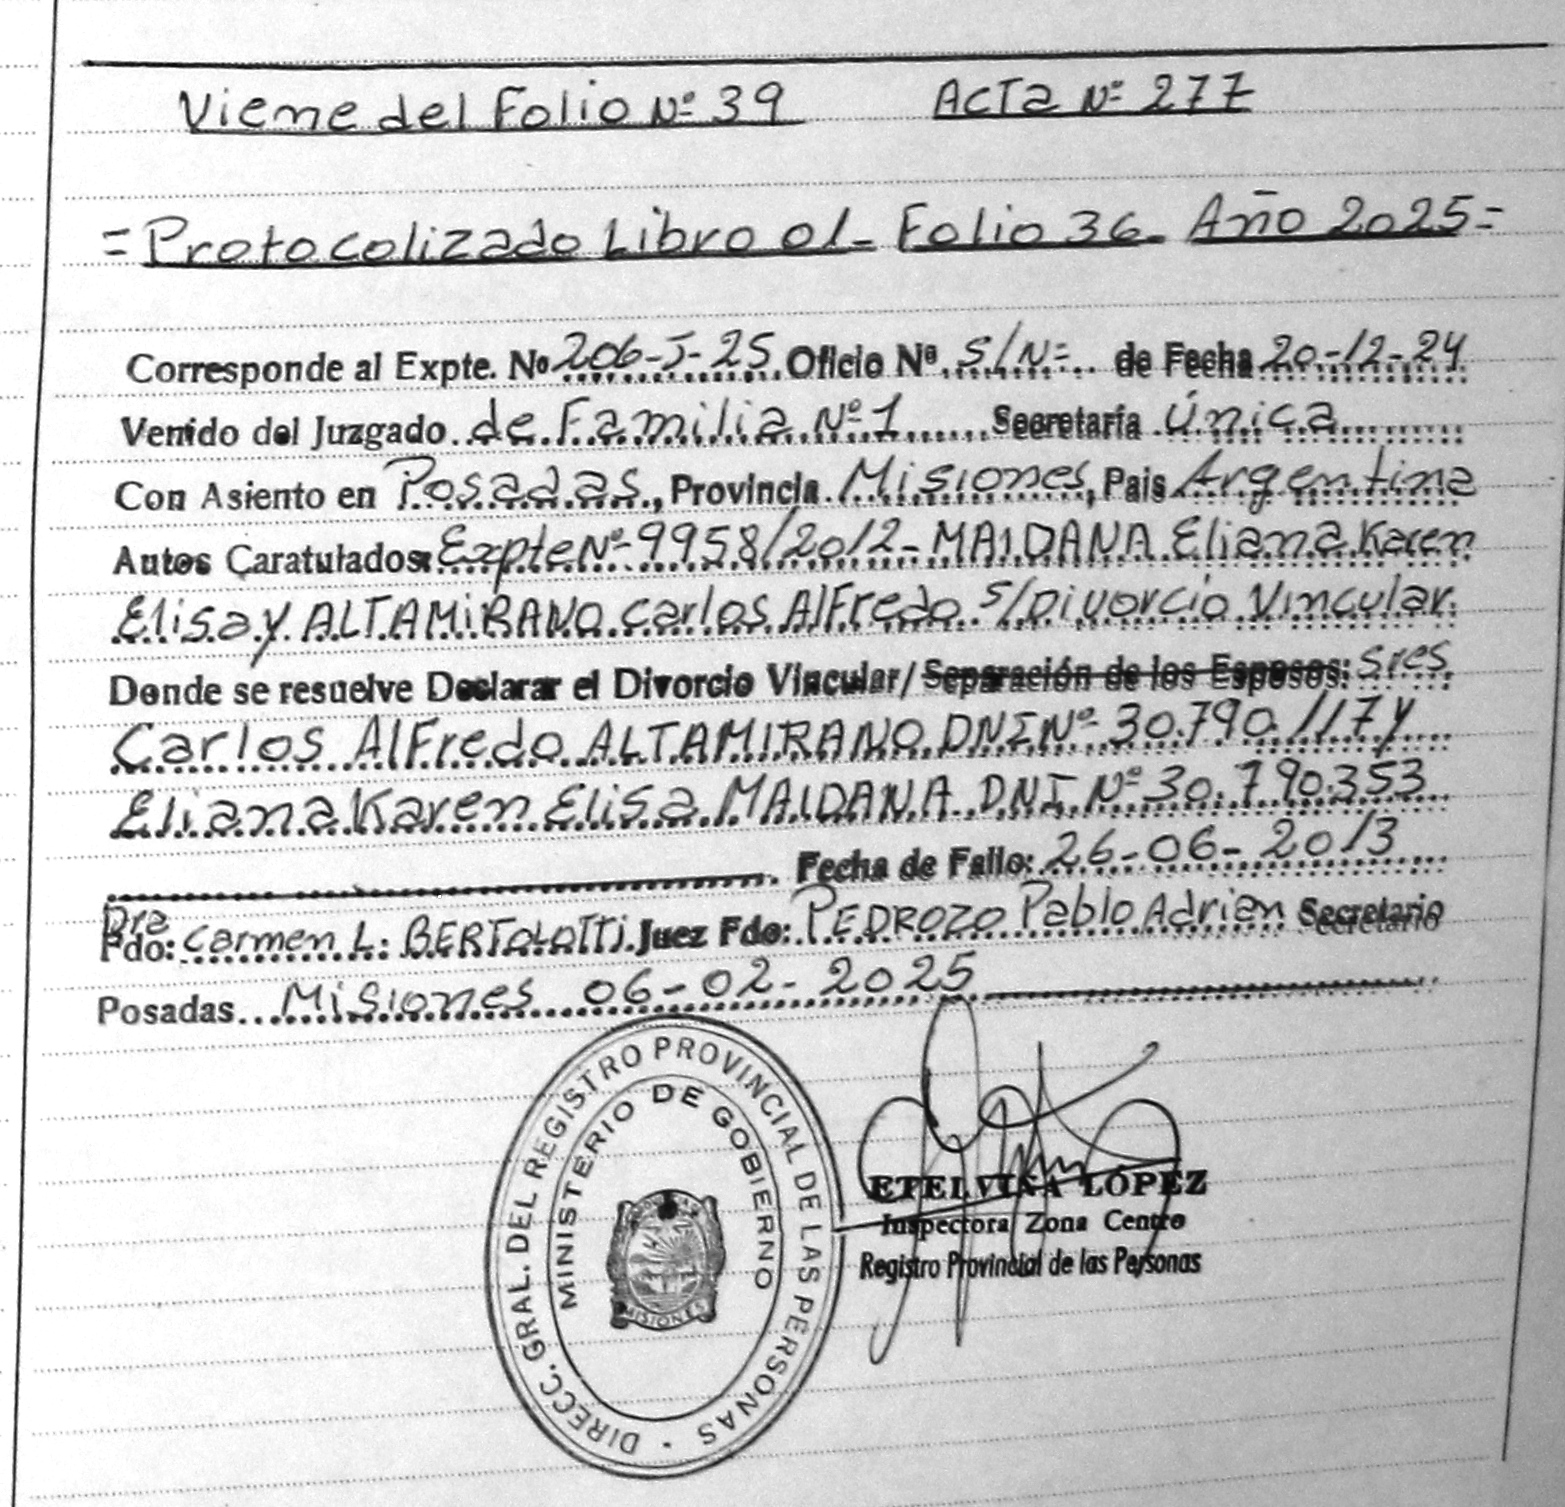 Viene del Folio Nº 39 Acta Nº 277
=Protocolizado Libro 01- Folio 36- Año 2025=
Corresponde al Expte. Nº 206-J-25 Oficio Nº S/Nº de Fecha 20-12-24
Venido del Juzgado de Familia Nº 1 Secretaría Única
Con Asiento en Posadas, Provincia Misiones, Pais Argentina
Autos Caratulados: Expte Nº 9958/2012- MAIDANA Eliana Karen
Elisa y ALTAMIRANO Carlos Alfredo s/Divorcio Vincular
Donde se resuelve Declarar el Divorcio Vincular/ Separación de los Esposos: Sres
Carlos Alfredo ALTAMIRANO DNI Nº 30.790.117 y
Eliana Karen Elisa MAIDANA DNI Nº 30.790.353
Fecha de Fallo: 26-06-2013
Dra
Fdo: Carmen L. BERTOLOTTI Juez Fdo: PEDROZO Pablo Adrian Secretario
Posadas Misiones 06-02-2025
DIRECC. GRAL. DEL REGISTRO PROVINCIAL DE LAS PERSONAS
MINISTERIO DE GOBIERNO
MISIONES
ETELVINA LÓPEZ
Inspectora Zona Centro
Registro Provincial de las Personas